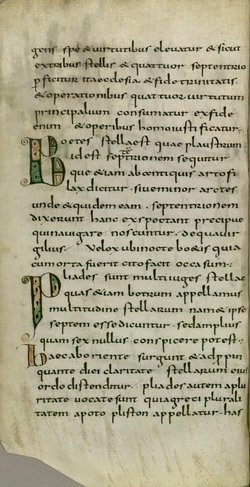 gens spe & uirtutibus eleuatur & sicut
extribus stellis & quattuor septentrio
p̱ficitur ita ecclesia & fide trinitatis
& operationibus quattuor uirtutum
principalium consumatur exfide
enim & operibus homo iustificatur,
Boetes stella est quae plaustrum
id est septrionem sequitur
que & iam ab oentiquis artofi
lax dicitur. siue minor arctos
unde & quidem eam. septentrionem
dixerunt hanc exspectant precipue
qui nauigare noscuntur. de qua dir
gilius. Uelox ubi nocte boetis qui a
cum orta fuerit cito facit occasum.
Pliades sunt multiuuges stellae
quas & iam botrum appellamus
multitudine stellarum nam & ipse
septem esse dicuntur. sed amplius
quam sex nullus conspicere potest.
haec ab oriente surgunt & adpropin
quante diei claritate stellarum eius
ordo distenditur. pliades autem aplu
ritate uocate sunt quia greci plurali
tatem apoto pliston appellatur. has